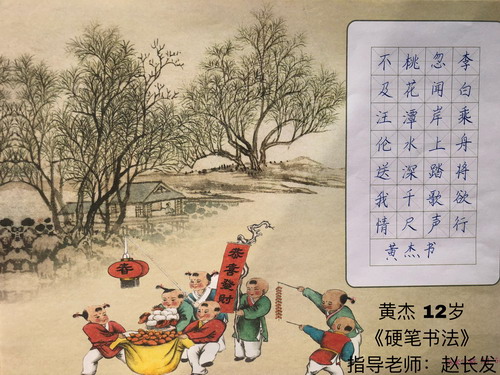 李白乘舟将欲行
忽闻岸上踏歌声
桃花潭水深千尺
不及汪伦送我情
黄杰书
春
恭喜發財
黄杰 12岁
《硬笔书法》
指导老师：赵长发